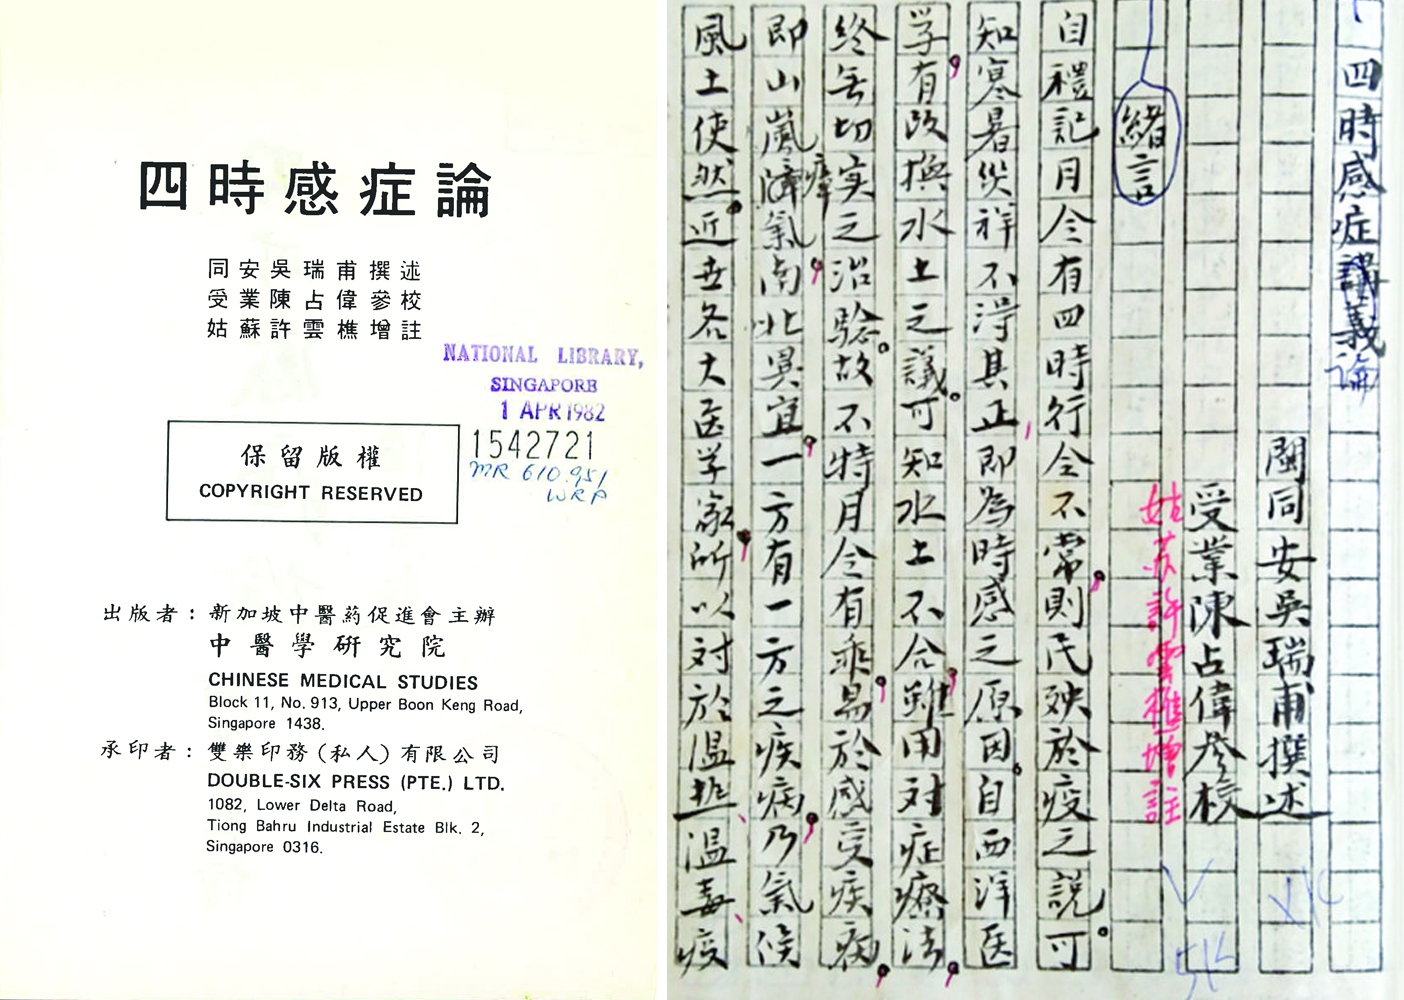 四時感症論
同安吳瑞甫撰述
受業陳占偉參校
姑蘇許雲樵增註
NATIONAL LIBRARY,
SINGAPORE
1 APR 1982
1542721
MR 610.951
WRP
保留版權
COPYRIGHT RESERVED
出版者：新加坡中醫葯促進會主辦
中醫學研究院
CHINESE MEDICAL STUDIES
Block 11, No. 913, Upper Boon Keng Road,
Singapore 1438.
承印者：雙樂印務(私人)有限公司
DOUBLE-SIX PRESS (PTE.) LTD.
1082, Lower Delta Road,
Tiong Bahru Industrial Estate Blk. 2,
Singapore 0316.
四時感症講義論
閩同安吳瑞甫撰述
受業陳占偉參校
姑苏許雲樵增註
緒言
自禮記月令有四時行令不常，則民殃於疫之説。可
知寒暑災祥不得其正，即為時感之原因。自西洋医
学，有改換水土之議。可知水土不合，雖用対症療法，
終無切实之治驗。故不特月令有乖，易於感受疾病，
即山嵐瘴氣，南北異宜，一方有一方之疾病，乃氣候
風土使然。近世各大医学家，所以対於温热、温毒、疫